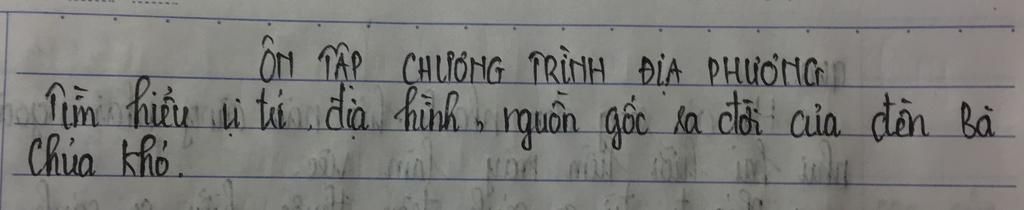 ÔN TẬP CHƯƠNG TRÌNH ĐỊA PHƯƠNG
Tìm hiểu vị trí, địa hình, nguồn gốc ra đời của đền Bà
Chúa Khó.